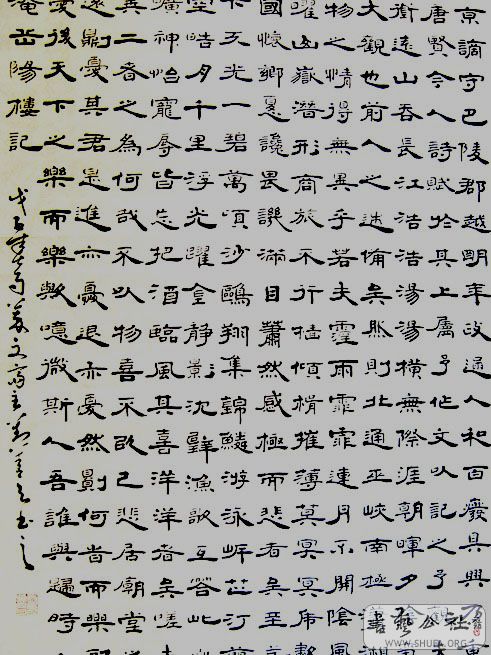 京謫守巴陵郡越明年政通人和百廢具興
唐賢今人詩賦於其上屬予作文以記之予觀
銜遠山吞長江浩浩湯湯橫無際涯朝暉夕
大觀也前人之述備矣然則北通巫峽南極
物之情得無異乎若夫霪雨霏霏連月不開陰風
曜山嶽潛形商旅不行檣傾楫摧薄莫冥冥虎
國懷鄉憂讒畏譏滿目蕭然感極而悲者矣至若
下天光一碧萬頃沙鷗翔集錦鱗游泳岸芷汀
空皓月千里浮光躍金靜影沈璧漁歌互答此
曠神怡寵辱皆忘把酒臨風其喜洋洋者矣嗟
異二者之為何哉不以物喜不以己悲居廟堂
遠則憂其君是進亦憂退亦憂然則何時而樂
憂後天下之樂而樂歟噫微斯人吾誰與歸時
淹岳陽樓記
書藝公社
WWW.SHUFA.ORG